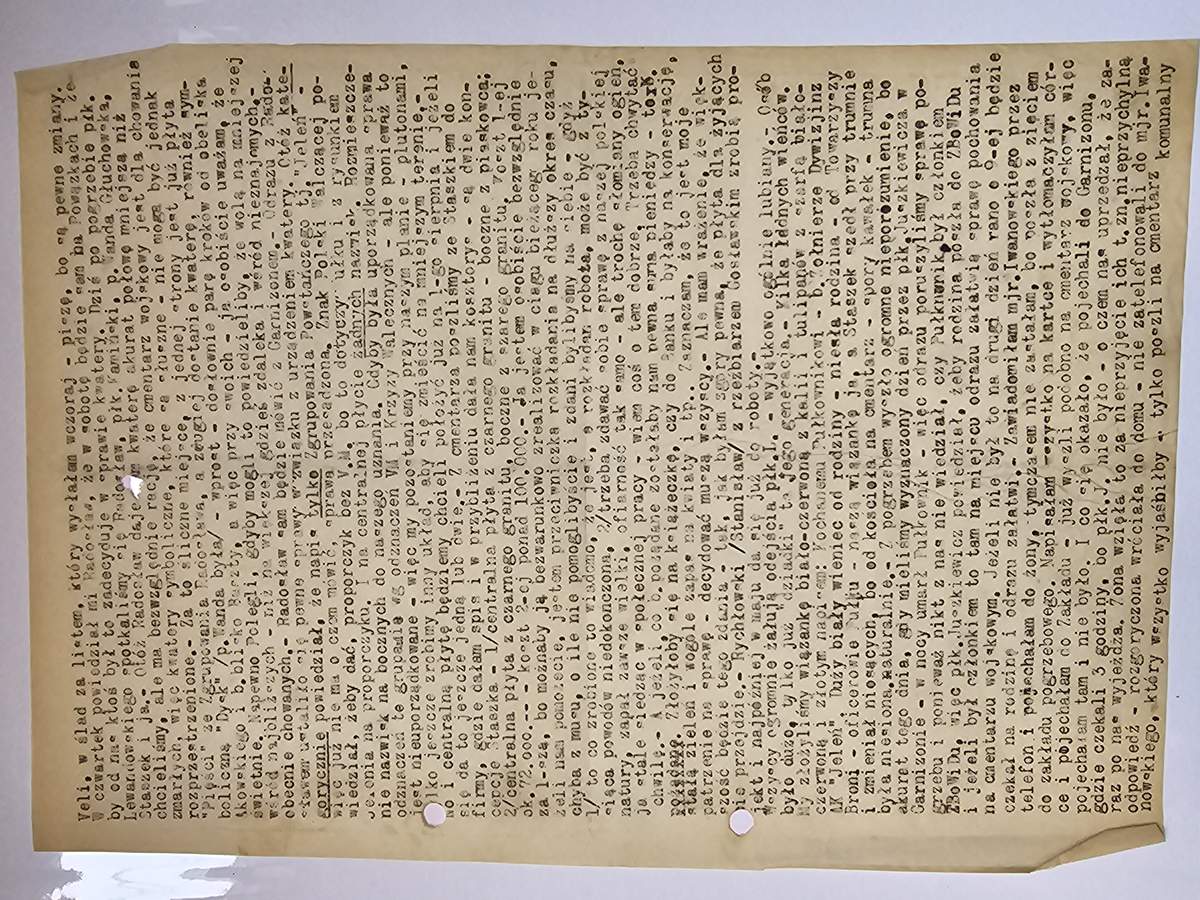 Veli, w ślad za listem, który wysłałam wczoraj - piszę, bo są pewne zmiany.
W czwartek powiedział mi Radosław, że w sobotę będzie sam na Powązkach i że-
by od nas ktoś był to zadecyduje w sprawie kwatery. Dziś po pogrzebie płk.
Lewandowskiego spotkaliśmy się Radosław, płk. Kamiński, p. Wanda Głuchowska,
Staszek i ja.- Otóż Radosław daje nam kwaterę akurat połowę mniejszą niż
chcieliśmy, ale ma bezwzględnie rację, że cmentarz wojskowy jest dla chowania
zmarłych, więc kwatery symboliczne, które są słuszne - nie mogą być jednak
rozprzestrzenione.- Za to śliczne miejsce, z jednej strony jest już płyta
"Pięści" ze Zgrupowania Radosława, a z drugiej dostanie kwaterę, również sym-
boliczną "Dysk" /p. Wanda była/ - wprost - dosłownie parę kroków od obeliska
AKowskiego i b.blisko Baszty, a więc przy swoich - ja osobiście uważam, że
świetnie. Napewno Polegli, gdyby mogli to powiedzieliby, że wolą na mniejszej
wśród najbliższych - niż na większej gdzieś zdaleka i wśród nieznajomych,-
obecnie chowanych.- Radosław sam będzie mówić z Garnizonem.- Odrazu z Rado-
sławem ustaliło się pewne sprawy w związku z urządzeniem kwatery. Otóż kate-
gorycznie powiedział, że napis tylko Zgrupowania Powstańczego tj. "Jeleń" -
więc już nie ma o czem mówić, sprawa przesądzona. Znak Polski Walczącej po-
wiedział, żeby dać, proporczyk bez V.M. bo to dotyczy Pułku i z rysunkiem
Jelenia na proporczyku. I na centralnej płycie żadnych nazwisk. Rozmieszcze-
nie nazwisk na bocznych do naszego uznania. Gdyby była uporządkowana sprawa
odznaczeń te grupami wg odznaczeń VM i Krzyży Walecznych, ale ponieważ to
jest nieuporządkowane - więc my pozostaniemy przy naszym planie - plutonami,
tylko jeszcze zrobimy inny układ, aby się zmieścić na mniejszym terenie.-
No i centralną płytę będziemy chcieli położyć już na 1-go sierpnia jeżeli
się da to jeszcze jedną lub dwie.- Z cmentarza poszliśmy ze Staszkiem do
firmy, gdzie dałam spis i w przybliżeniu dała nam kosztorys - są dwie kon-
cepcje Staszka - 1/centralna płyta z czarnego granitu - boczne z piaskowca;
2/centralna płyta z czarnego granitu, boczne z szarego granitu. Koszt 1-ej
ok. 72.000.-- - koszt 2-ej ponad 100.000.- Ja jestem osobiście bezwzględnie
za 1-szą, bo możnaby ją bezwarunkowo zrealizować w ciągu bieżącego roku je-
żeli nam pomożecie, jestem przeciwniczką rozkładania na dłuższy okres czasu,
chyba z musu, o ile nie pomoglibyście i zdani bylibyśmy na siebie - gdyż
1/ to co zrobione to wiadomo, że jest, a rozkładana robota, może być z ty-
siąca powodów niedokończona, 2/trzeba zdawać sobie sprawę z naszej polskiej
natury, zapał zawsze wielki, ofiarność tak samo - ale trochę słomiany ogień,
ja stale siedząc w społecznej pracy - wiem coś o tem dobrze. Trzeba chwytać
chwilę.- A jeżeli, co b. pożądane zostałaby nam pewna suma pieniędzy -
Złożyłoby się na książeczkę, czy do Banku i byłaby na konserwację,
stałą zieleń i wogóle zapas na kwiaty i tp. Zaznaczam, że to jest moje
patrzenie na sprawę - decydować muszą wszyscy.- Ale mam wrażenie, że więk-
szość będzie tego zdania - tak, jak byłam zgóry pewna, że płyta dla żyjących
nie przejdzie.- Rychłowski /Stanisław/ z rzeźbiarzem Gosławskim zrobią pro-
jekt i najpóźniej w maju da się już do roboty.-
Wszyscy ogromnie żałują odejścia płk.L. - wyjątkowo ogólnie lubiany - Osób
było dużo, tylko już "działki" ta Jego generacja.- Kilka ładnych wieńców.
My złożyliśmy wiązankę biało-czerwoną z kalii i tulipanów z szarfą biało-
czerwoną i złotym napisem: Kochanemu Pułkownikowi - b. Żołnierze Dywizjonu
AK "Jeleń" Duży biały wieniec od rodziny - miała rodzina - od Towarzyszy
Broni - oficerowie Pułku - naszą wiązankę ja, a Staszek szedł przy trumnie
i zmieniał niosących, bo od kościoła na cmentarz - spory kawałek - trumna
była niesiona, naturalnie.- Z pogrzebem wyszło ogromne nieporozumienie, bo
akurat tego dnia, gdy mieliśmy wyznaczony dzień przez płk. Juszkiewicza w
Garnizonie - w nocy umarł Pułkownik - więc odrazu poruszyliśmy sprawę po-
grzebu i ponieważ nikt z nas nie wiedział, czy Pułkownik był członkiem
ZBoWiDu, więc płk. Juszkiewicz powiedział, żeby rodzina poszła do ZBoWiDu
i jeżeli był członkiem to tam na miejscu odrazu załatwią sprawę pochowania
na cmentarzu wojskowym. Jeżeli nie był to na drugi dzień rano o 9-ej będzie
czekał na rodzinę i odrazu załatwi.- Zawiadomiłam mjr. Iwanowskiego przez
telefon i pojechałam do żony, tymczasem nie zastałam, bo poszła z zięciem
do zakładu pogrzebowego. Napisałam wszystko na kartce i wytłomaczyłam cór-
ce i pojechałam do Zakładu - już wyszli podobno na cmentarz wojskowy, więc
pojechałam tam i nie było. I co się okazało, że pojechali do Garnizonu,
gdzie czekali 3 godziny, bo płk.J. nie było - o czem nas uprzedzał, że za-
raz po nas wyjeżdża. Żona wzięła to za nieprzyjęcie ich t.zn. nieprzychylną
odpowiedź - rozgoryczona wróciła do domu - nie zatelefonowali do mjr. Iwa-
nowskiego, który wszystko wyjaśniłby - tylko poszli na cmentarz komunalny